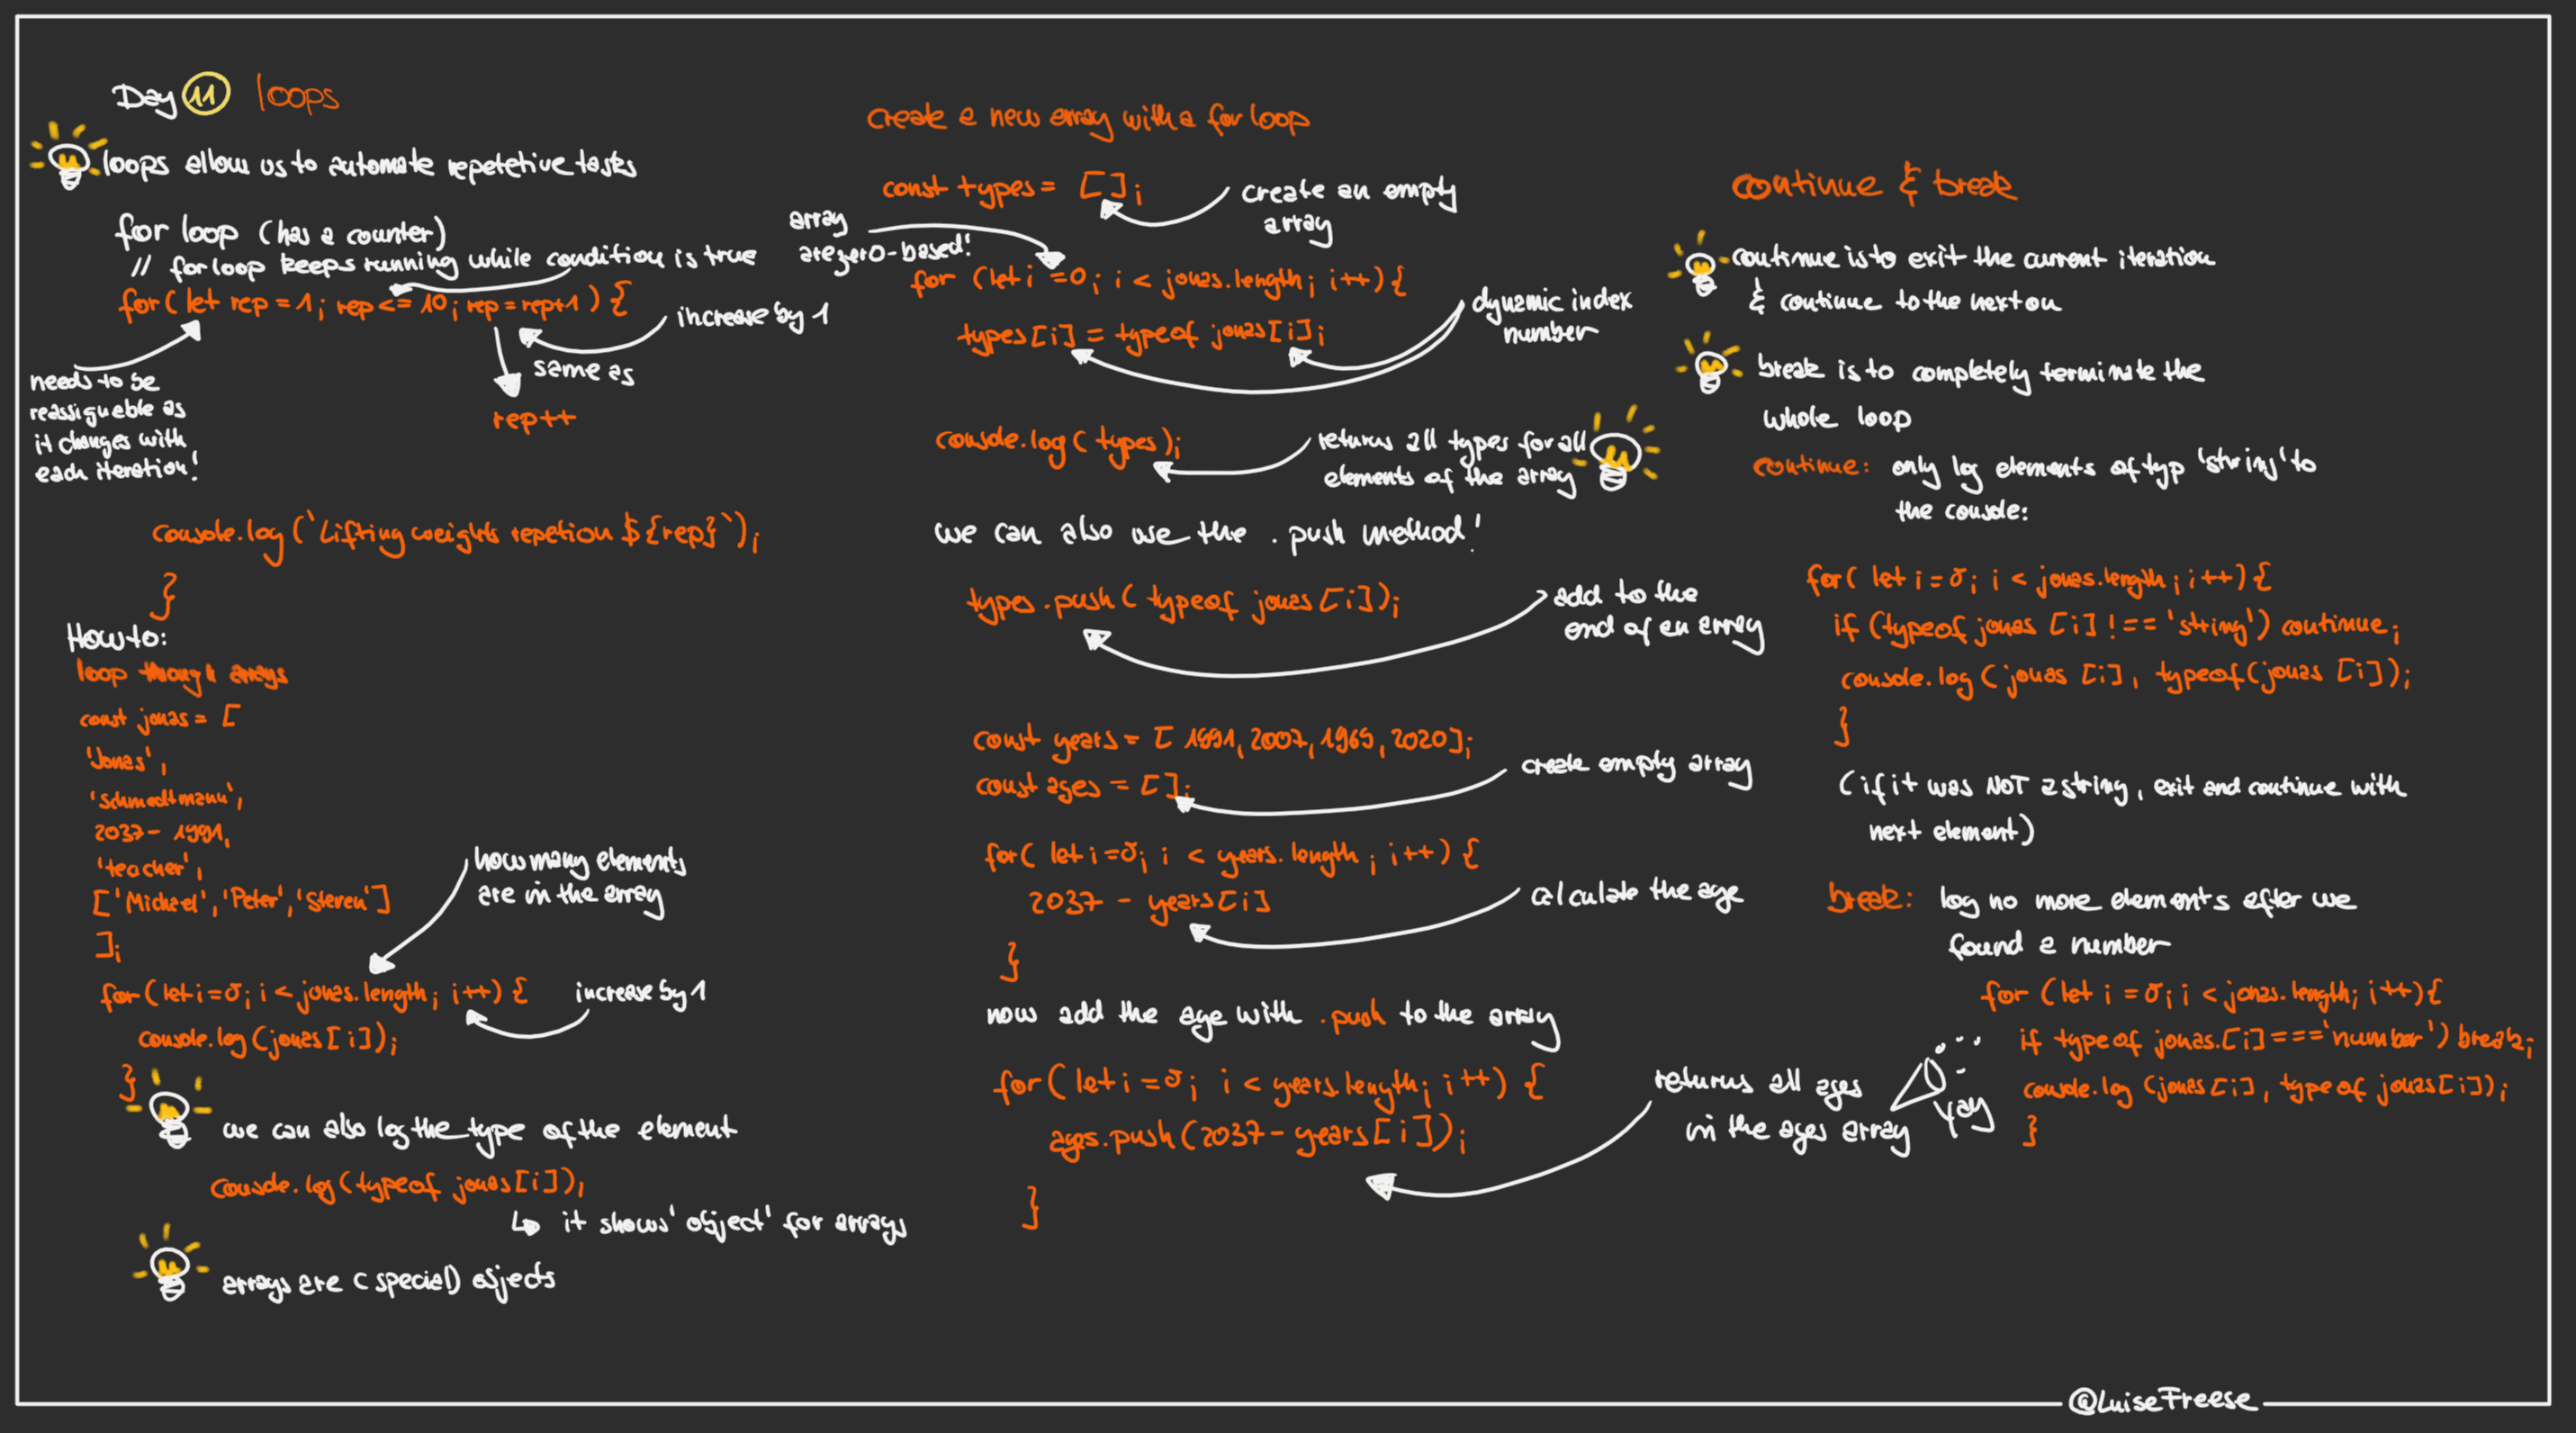 Day 11 loops
loops allow us to automate repetetive tasks
for loop (has a counter)
// for loop keeps running while condition is true
for ( let rep = 1; rep <= 10; rep = rep+1 ) {
increase by 1
needs to be
reassigneble as
it changes with
each iteration!
same as
rep++
console.log (`Lifting weights repetion ${rep}`);
}
How to:
loop through arrays
const jonas = [
'Jonas',
'schmedtmann',
2037 - 1991,
'teacher',
['Michael', 'Peter', 'Steven']
];
how many elements
are in the array
for (let i = 0; i < jonas.length; i++) {
increase by 1
console.log (jonas [i]);
}
we can also log the type of the element
console.log (typeof jonas [i]);
↳ it shows 'object' for arrays
arrays are (special) objects
create a new array with a for loop
const types = [];
create an empty
array
array
are zero-based!
for (let i = 0; i < jonas.length; i++) {
types [i] = typeof jonas [i];
dynamic index
number
console.log (types);
returns all types for all
elements of the array
we can also use the .push method!
types.push ( typeof jonas [i]);
add to the
end of an array
const years = [ 1991, 2007, 1969, 2020];
const ages = [];
create empty array
for ( let i = 0; i < years.length; i++) {
2037 - years [i]
calculate the age
}
now add the age with .push to the array
for ( let i = 0; i < years.length; i++) {
ages.push (2037 - years [i]);
}
returns all ages
in the ages array
yay
continue & break
continue is to exit the current iteration
& continue to the next on
break is to completely terminate the
whole loop
continue: only log elements of typ 'string' to
the console:
for ( let i = 0; i < jonas.length; i++) {
if (typeof jonas [i] !== 'string') continue;
console.log (jonas [i], typeof (jonas [i]);
}
(if it was NOT a string, exit and continue with
next element)
break: log no more elements after we
found a number
for (let i = 0; i < jonas.length; i++) {
if typeof jonas.[i] === 'number') break;
console.log (jonas [i], typeof jonas [i]);
}
@LuiseFreese